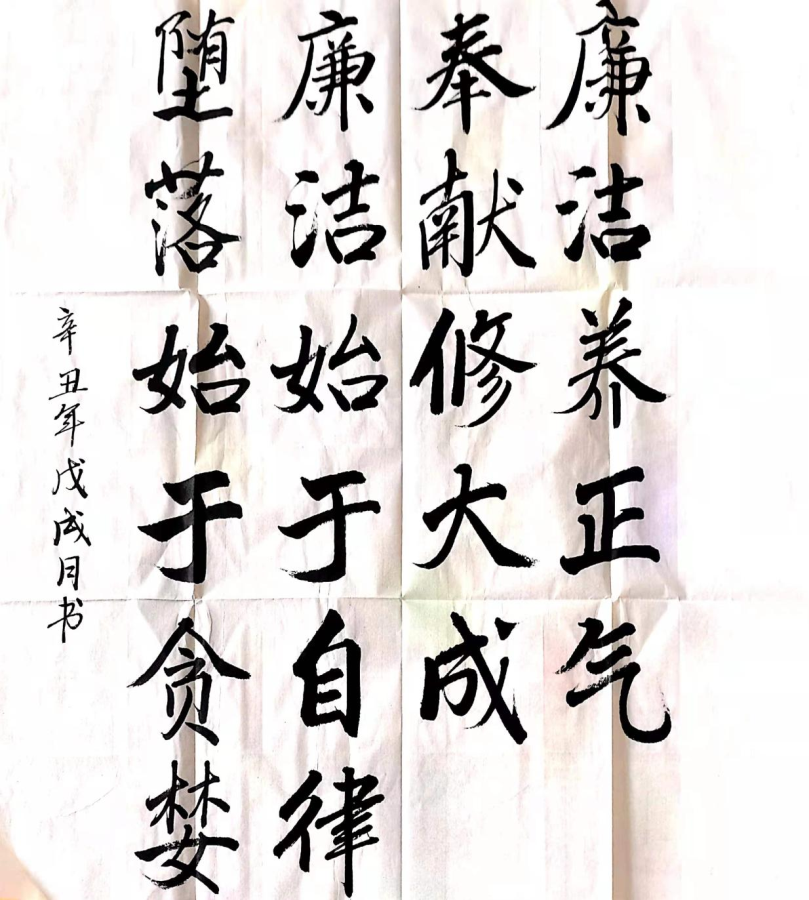 廉洁养正气
奉献修大成
廉洁始于自律
堕落始于贪婪
辛丑年戊戌月书